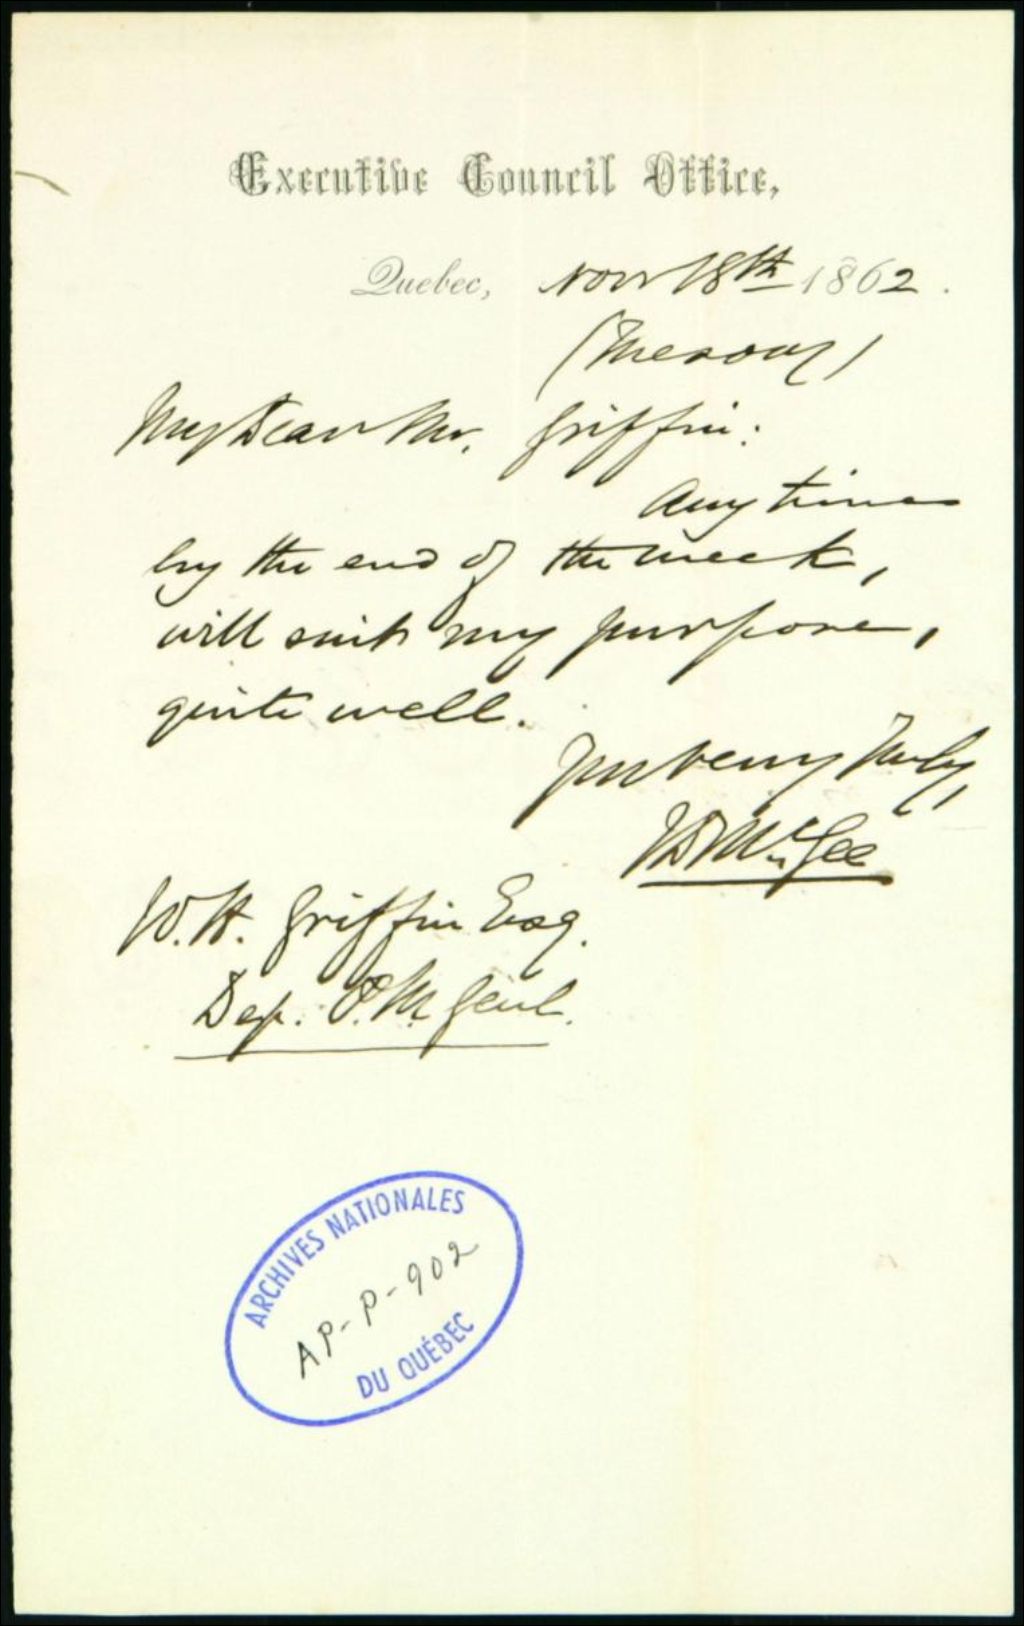 Executive Council Office,
Quebec, Novr 18th 1862.
(Tuesday)
My Dear Mr. Griffin:
Any time
by the end of the week,
will suit my purpose,
quite well.
Yrs very truly,
T D McGee
W. H. Griffin Esq.
Dep. P. M. Genl.
ARCHIVES NATIONALES
AP-P-902
DU QUÉBEC